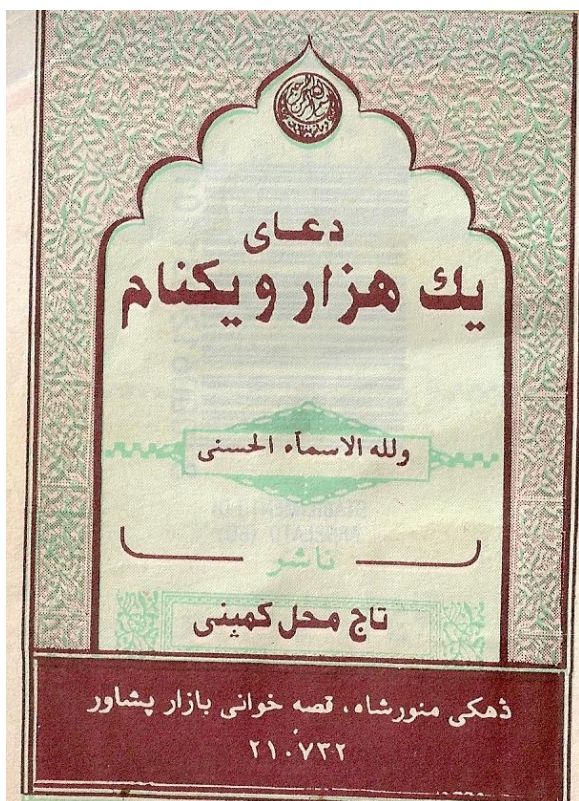 دعای
یك هزار و یکنام
ولله الاسمآء الحسنی
ناشر
تاج محل کمپنی
ڈھکی منورشاہ، قصه خوانی بازار پشاور
۲۱۰۷۳۲